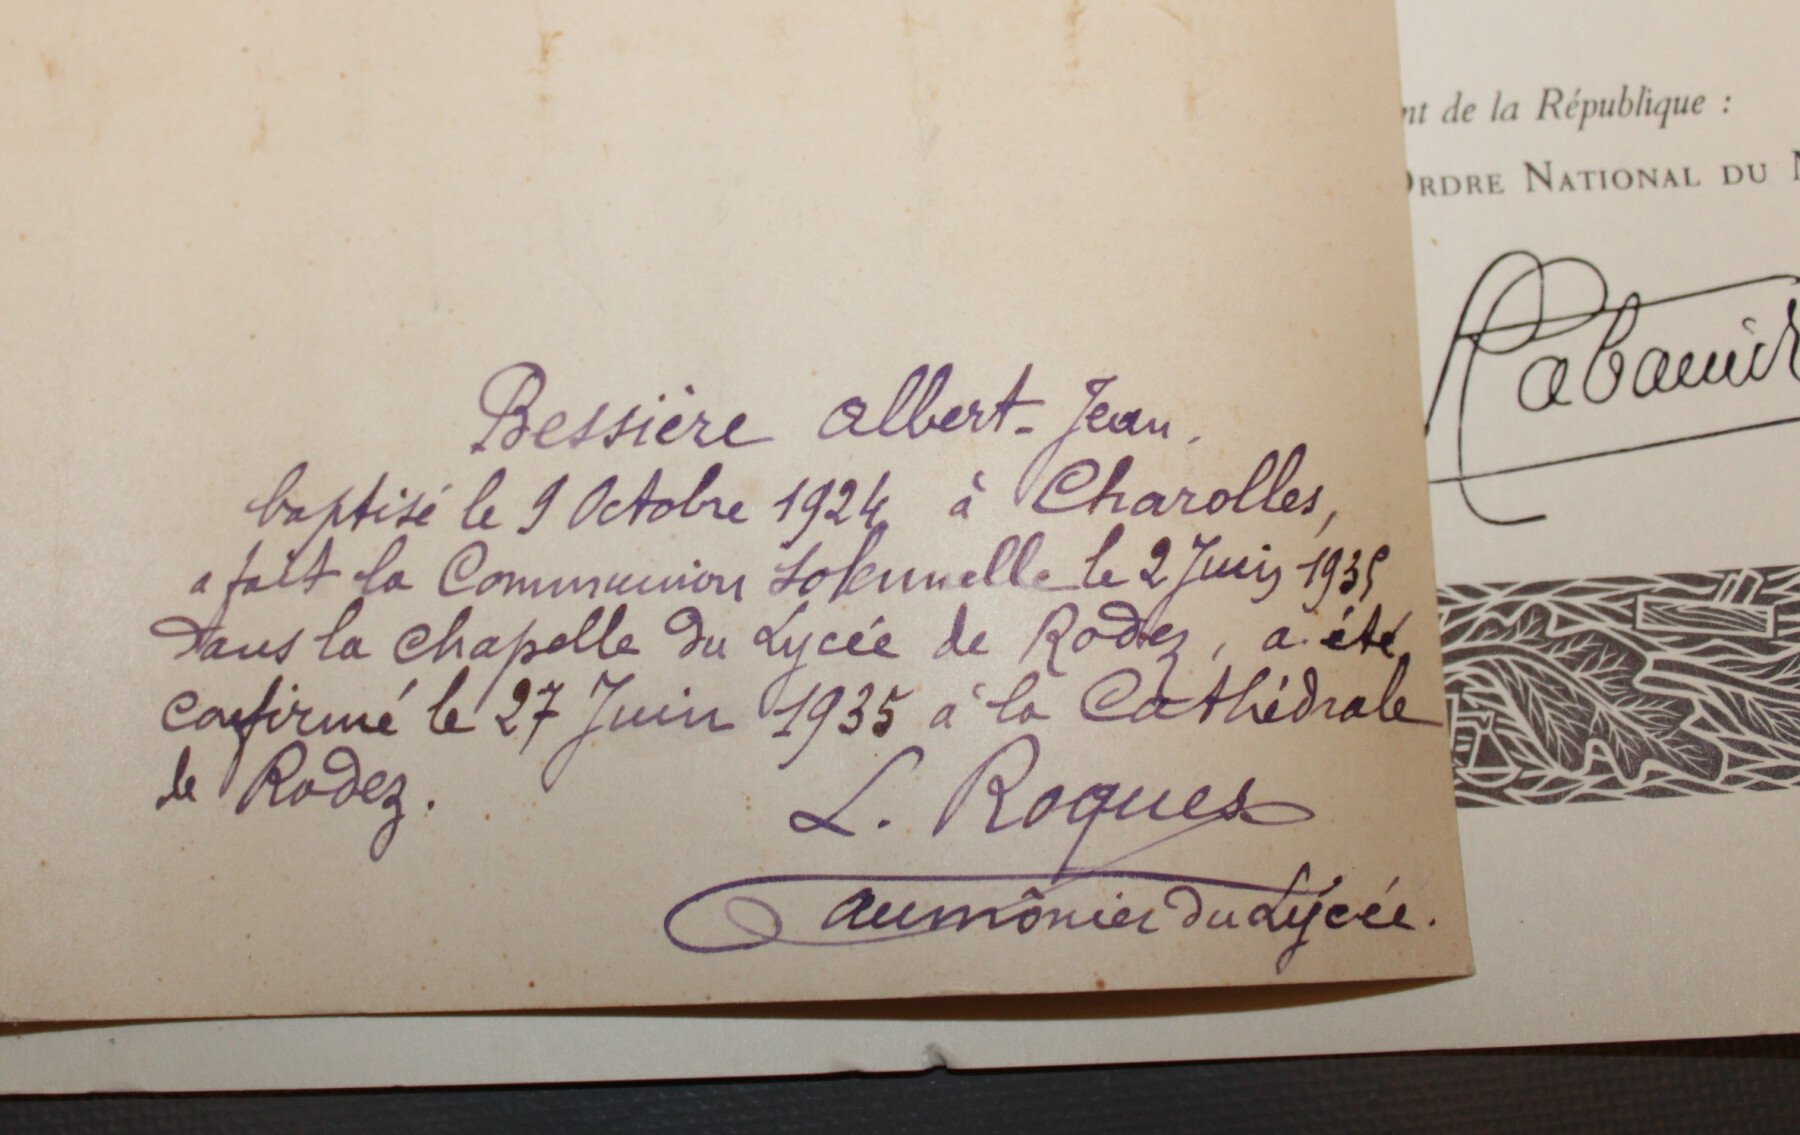 Bessière Albert-Jean.
baptisé le 9 Octobre 1924 à Charolles,
a fait la Communion Solennelle le 2 Juin 1935
dans la chapelle du Lycée de Rodez, a été
confirmé le 27 Juin 1935 à la Cathédrale
de Rodez.
L. Roques
aumônier du Lycée.
nt de la République :
Ordre National du M